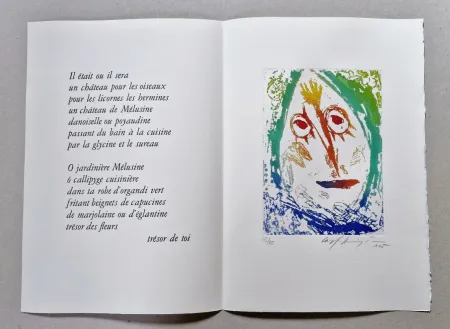 Il était ou il sera
un château pour les oiseaux
pour les licornes les hermines
un château de Mélusine
danoiselle ou poyaudine
passant du bain à la cuisine
par la glycine et le sureau
O jardinière Mélusine
ô callipyge cuisinière
dans ta robe d'organdi vert
fritant beignets de capucines
de marjolaine ou d'églantine
trésor des fleurs
trésor de toi